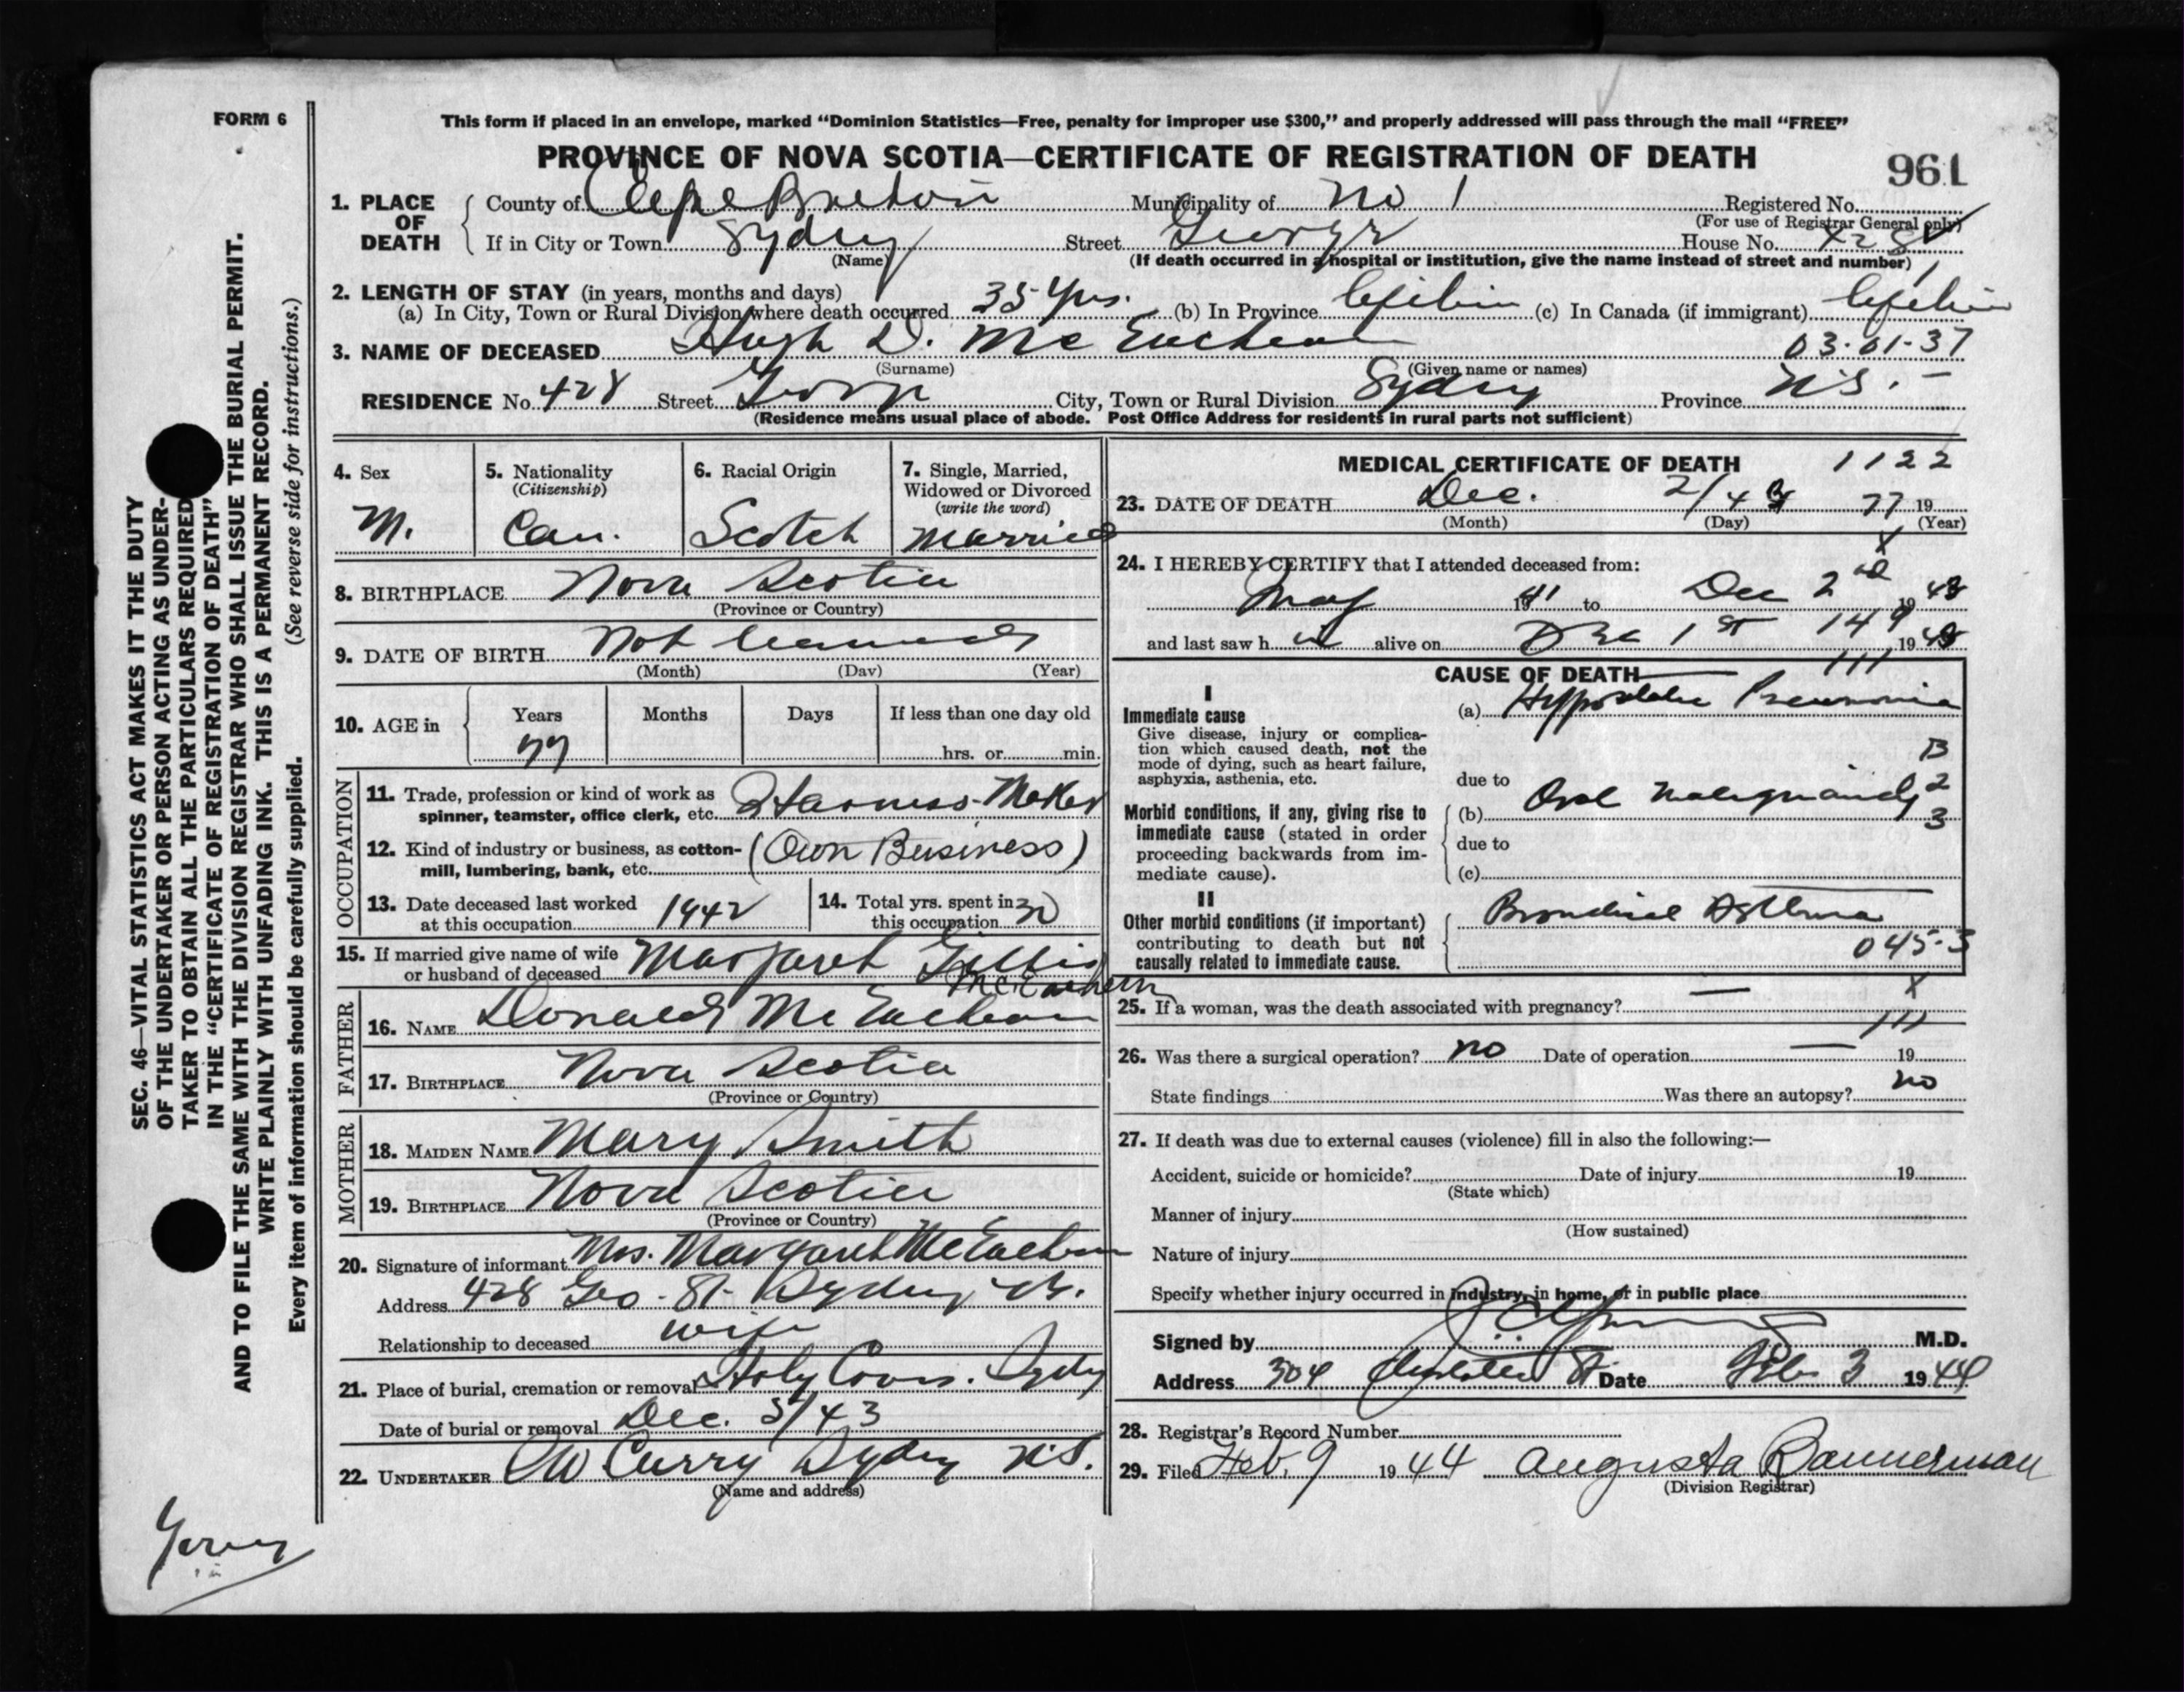 FORM 6
This form if placed in an envelope, marked “Dominion Statistics—Free, penalty for improper use $300,” and properly addressed will pass through the mail “FREE”
PROVINCE OF NOVA SCOTIA—CERTIFICATE OF REGISTRATION OF DEATH
961
1. PLACE OF DEATH
County of Cape Breton Municipality of No 1 Registered No.
(For use of Registrar General only)
If in City or Town Sydney Street George House No. 428
(Name) (If death occurred in a hospital or institution, give the name instead of street and number)
2. LENGTH OF STAY (in years, months and days)
(a) In City, Town or Rural Division where death occurred 35 yrs. (b) In Province Lifetime (c) In Canada (if immigrant) Lifetime
3. NAME OF DECEASED Hugh D. McEachern 03-01-37
(Surname) (Given name or names)
RESIDENCE No. 428 Street George City, Town or Rural Division Sydney Province N.S. -
(Residence means usual place of abode. Post Office Address for residents in rural parts not sufficient)
4. Sex
M.
5. Nationality
(Citizenship)
Can.
6. Racial Origin
Scotch
7. Single, Married,
Widowed or Divorced
(write the word)
Married
8. BIRTHPLACE Nova Scotia
(Province or Country)
9. DATE OF BIRTH Not learned
(Month) (Day) (Year)
10. AGE in
Years Months Days If less than one day old
77 hrs. or min.
OCCUPATION
11. Trade, profession or kind of work as
spinner, teamster, office clerk, etc. Harness-Maker
12. Kind of industry or business, as cotton-
mill, lumbering, bank, etc. (Own Business)
13. Date deceased last worked
at this occupation 1942
14. Total yrs. spent in
this occupation 30
15. If married give name of wife
or husband of deceased Margaret Gillis
McEachern
FATHER
16. NAME Donald McEachern
17. BIRTHPLACE Nova Scotia
(Province or Country)
MOTHER
18. MAIDEN NAME Mary Smith
19. BIRTHPLACE Nova Scotia
(Province or Country)
20. Signature of informant Mrs. Margaret McEachern
Address 428 Geo. St. Sydney N.S.
Relationship to deceased wife
21. Place of burial, cremation or removal Holy Cross. Sydney
Date of burial or removal Dec. 5/43
22. UNDERTAKER W Curry Sydney N.S.
(Name and address)
MEDICAL CERTIFICATE OF DEATH 1122
23. DATE OF DEATH Dec. 2/43 77 19
(Month) (Day) (Year)
X
24. I HEREBY CERTIFY that I attended deceased from:
May 1941 to Dec 2nd 1943
and last saw h im alive on Dec 1st 149 1943
111
CAUSE OF DEATH
I
Immediate cause
Give disease, injury or complica-
tion which caused death, not the
mode of dying, such as heart failure,
asphyxia, asthenia, etc.
(a) Hypostatic Pneumonia
due to
Morbid conditions, if any, giving rise to
immediate cause (stated in order
proceeding backwards from im-
mediate cause).
(b) Oral Malignancy
B
2
3
due to
(c)
II
Other morbid conditions (if important)
contributing to death but not
causally related to immediate cause.
Bronchial Asthma
045-3
25. If a woman, was the death associated with pregnancy? — X
111
26. Was there a surgical operation? no Date of operation — 19
State findings Was there an autopsy? no
27. If death was due to external causes (violence) fill in also the following:—
Accident, suicide or homicide? Date of injury 19
(State which)
Manner of injury
(How sustained)
Nature of injury
Specify whether injury occurred in industry, in home, or in public place
Signed by M.D.
Address 304 Charlotte St. Date Feb 3 1944
28. Registrar's Record Number
29. Filed Feb. 9 1944 Augusta Bannerman
(Division Registrar)
SEC. 46—VITAL STATISTICS ACT MAKES IT THE DUTY
OF THE UNDERTAKER OR PERSON ACTING AS UNDER-
TAKER TO OBTAIN ALL THE PARTICULARS REQUIRED
IN THE “CERTIFICATE OF REGISTRATION OF DEATH”
AND TO FILE THE SAME WITH THE DIVISION REGISTRAR WHO SHALL ISSUE THE BURIAL PERMIT.
WRITE PLAINLY WITH UNFADING INK. THIS IS A PERMANENT RECORD.
Every item of information should be carefully supplied. (See reverse side for instructions.)